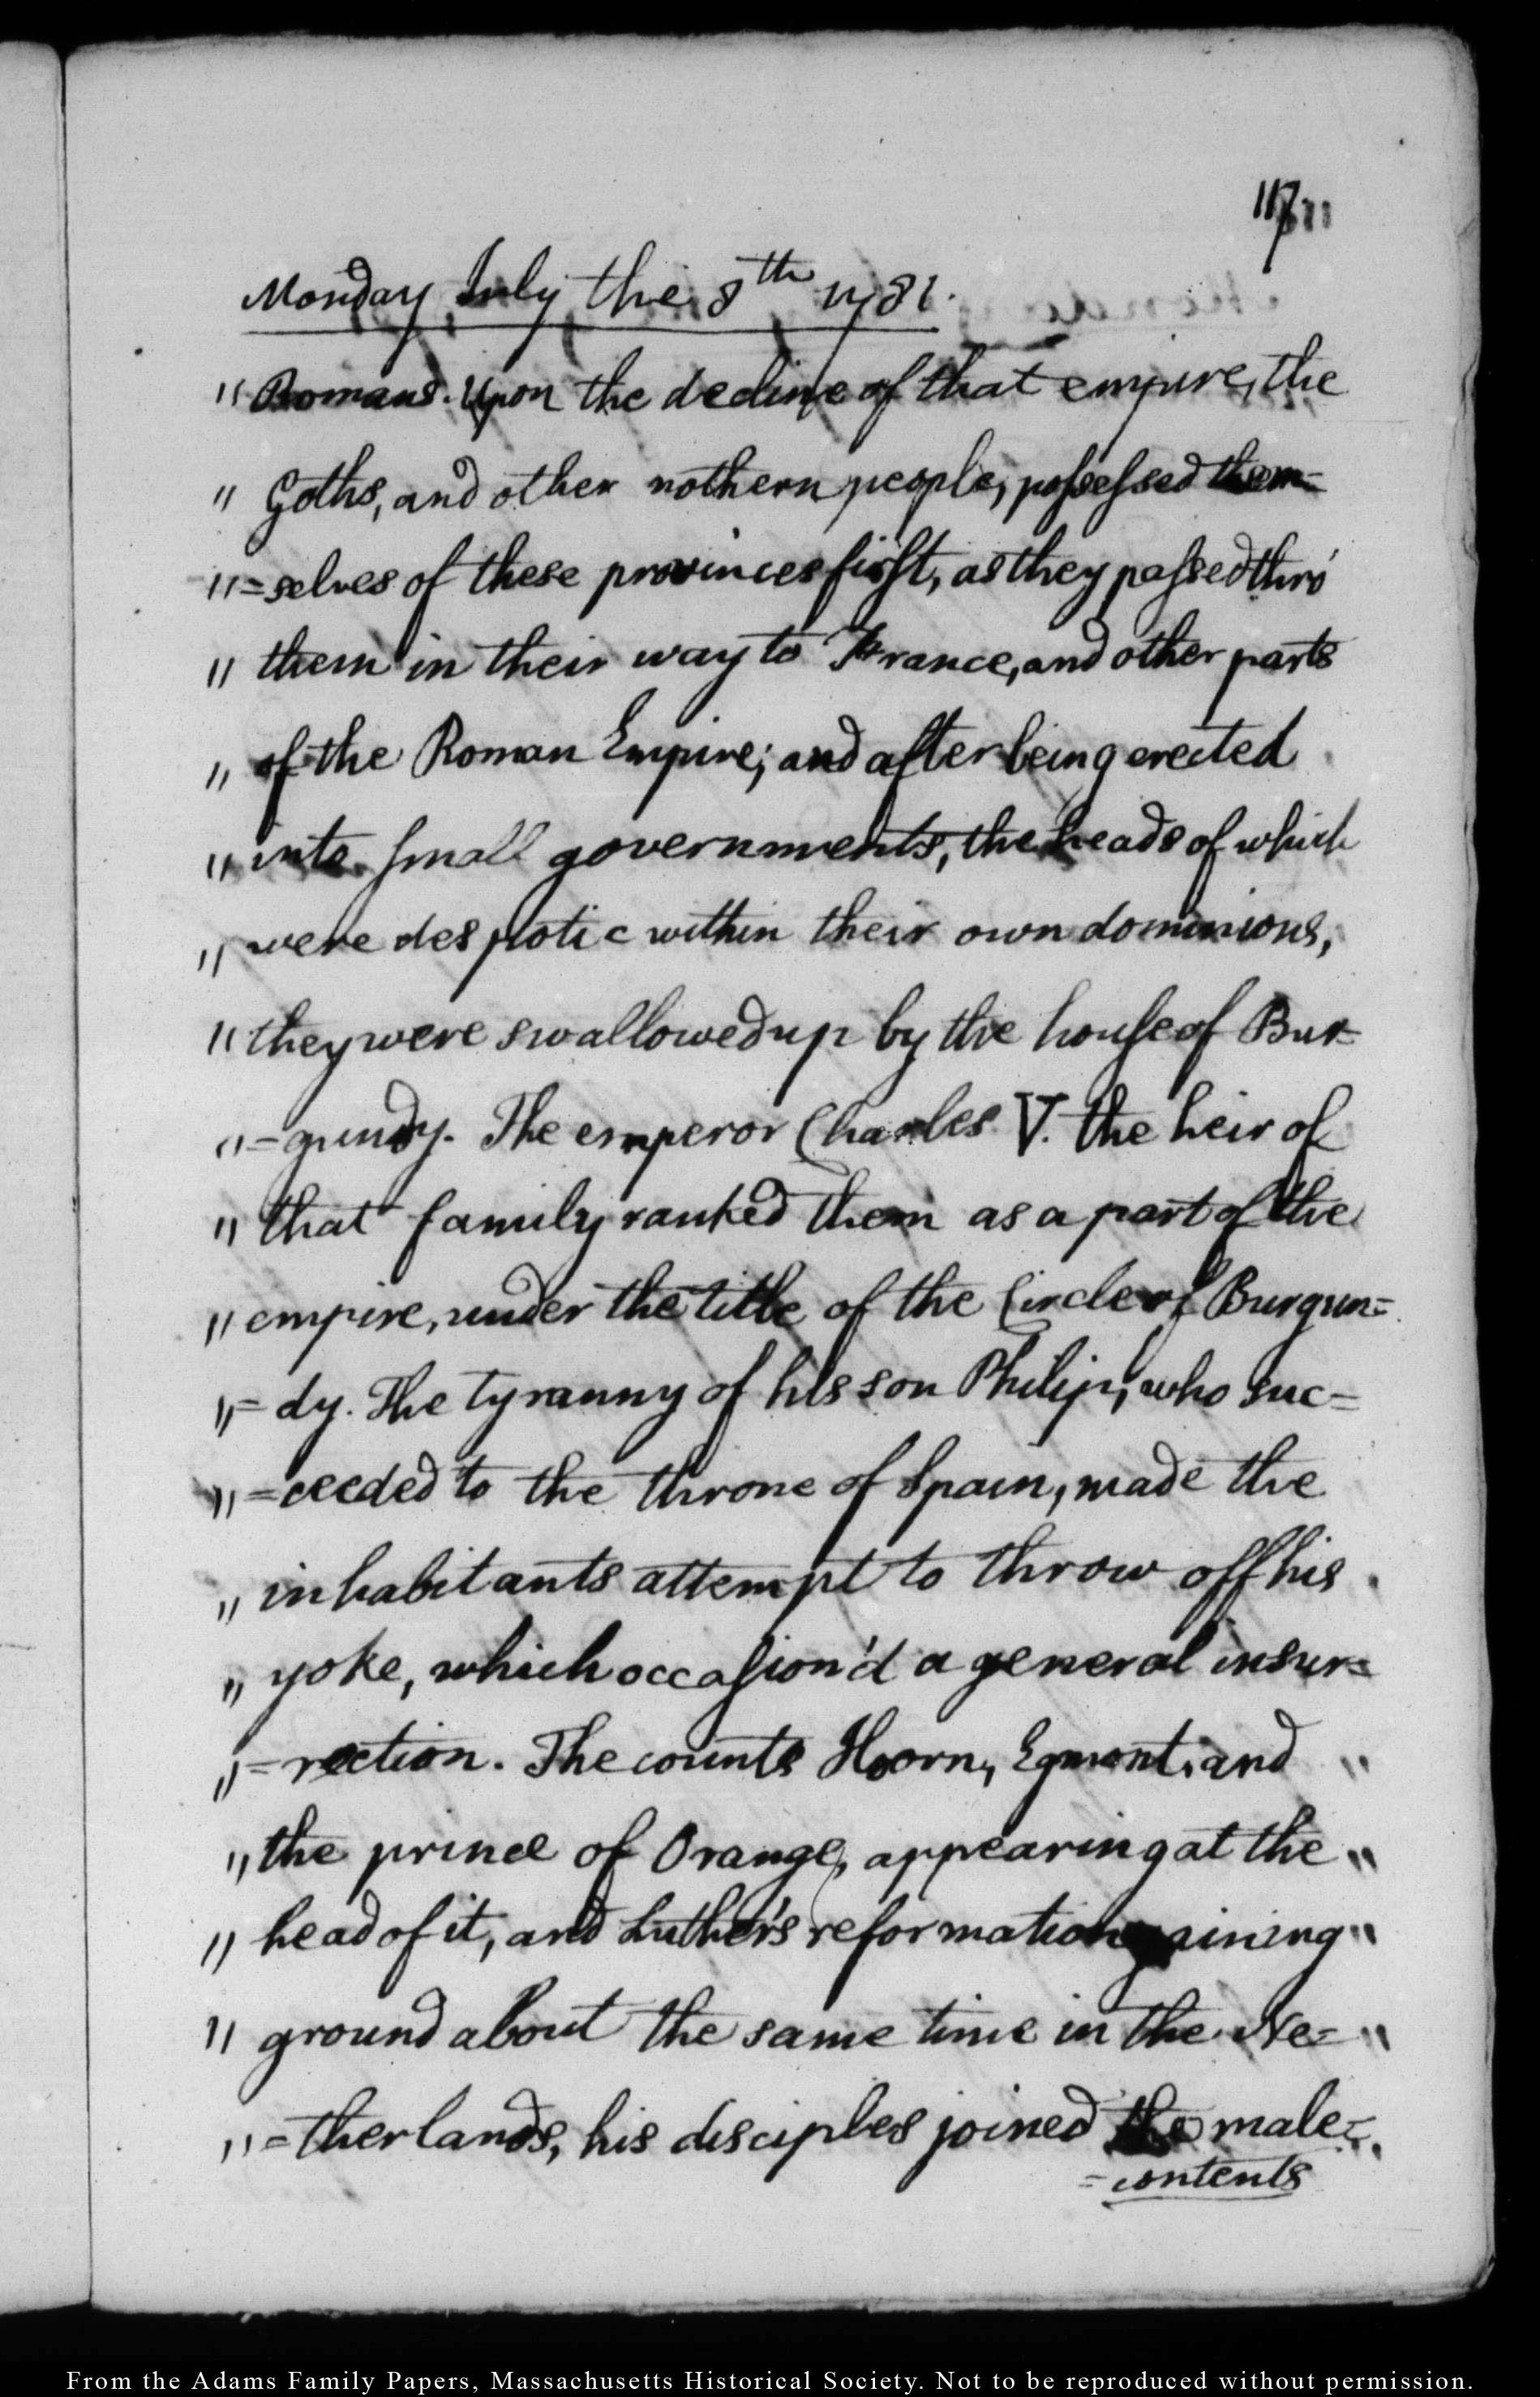 117
Monday July the 8th 1781.
" Romans. Upon the decline of that empire, the
" Goths, and other nothern people, possessed them=
" =selves of these provinces first, as they passed thro'
" them in their way to France, and other parts
" of the Roman Empire; and after being erected
" into small governments, the heads of which
" were despotic within their own dominions,
" they were swallowed up by the house of Bur=
" =gundy. The emperor Charles V. the heir of
" that family ranked them as a part of the
" empire, under the title of the Circle of Burgun=
" =dy. The tyranny of his son Philip, who suc=
" =ceeded to the throne of Spain, made the
" inhabitants attempt to throw off his
" yoke, which occasion'd a general insur=
" =rection. The counts Hoorn, Egmont, and "
" the prince of Orange, appearing at the "
" head of it, and Luther's reformation gaining "
" ground about the same time in the Ne= "
" =therlands, his disciples joined the male=
=contents
From the Adams Family Papers, Massachusetts Historical Society. Not to be reproduced without permission.